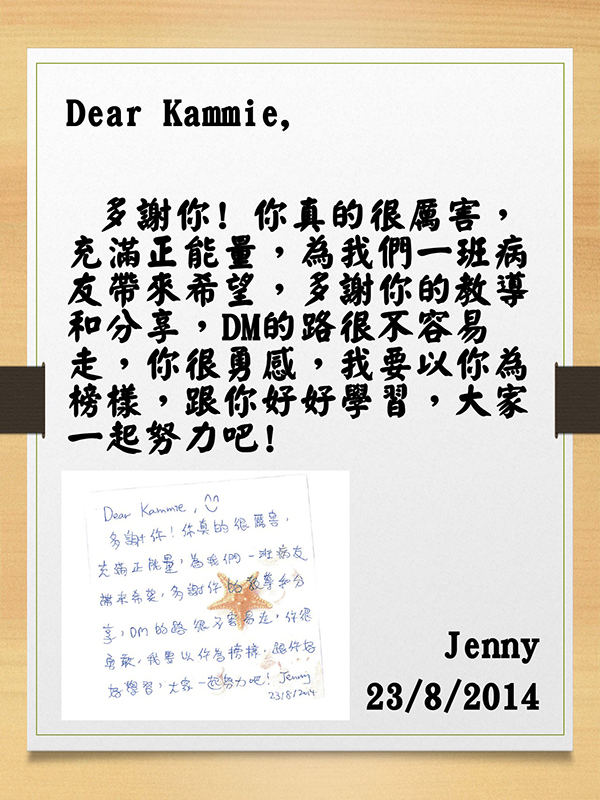 Dear Kammie,
多謝你! 你真的很厲害，
充滿正能量，為我們一班病
友帶來希望，多謝你的教導
和分享，DM的路很不容易
走，你很勇感，我要以你為
榜樣，跟你好好學習，大家
一起努力吧!
Dear Kammie,
多謝你! 你真的很厲害,
充滿正能量, 為我們一班病友
帶來希望, 多謝你的教導和分
享, DM的路很不容易走, 你很
勇敢, 我要以你為榜樣, 跟你好
好學習, 大家一起努力吧! Jenny
23/8/2014
Jenny
23/8/2014